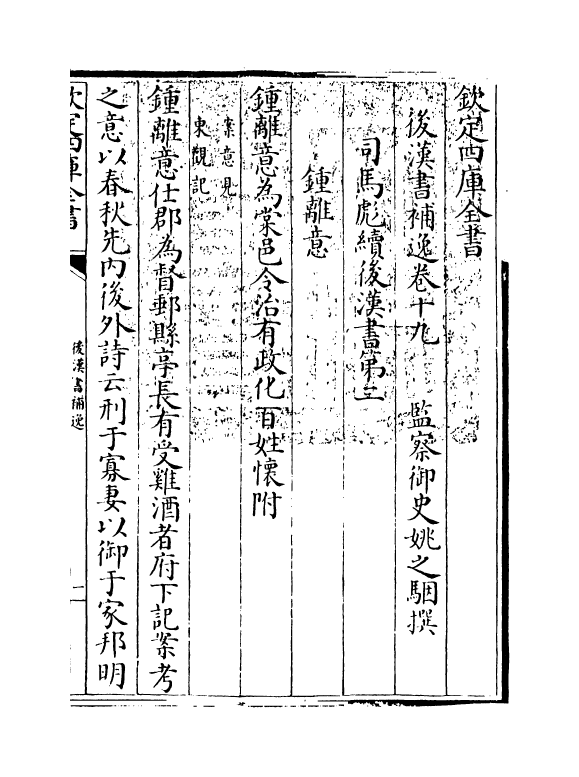 欽定四庫全書
後漢書補逸卷十九　監察御史姚之駰撰
司馬彪續後漢書第二
鍾離意
鍾離意為棠邑令治有政化百姓懷附
案意見
東觀記
鍾離意仕郡為督郵縣亭長有受雞酒者府下記案考
之意以春秋先內後外詩云刑于寡妻以御于家邦明
欽定四庫全書
後漢書補逸